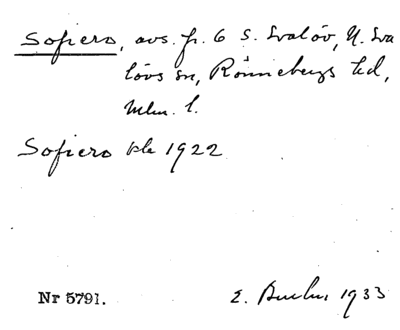 Sofiero, avs. fr. 6 S. Svalöv, N. Sva
lövs sn, Rönnebergs hd,
Mlm. l.
Sofiero kle 1922
Nr 5791. E. 1933